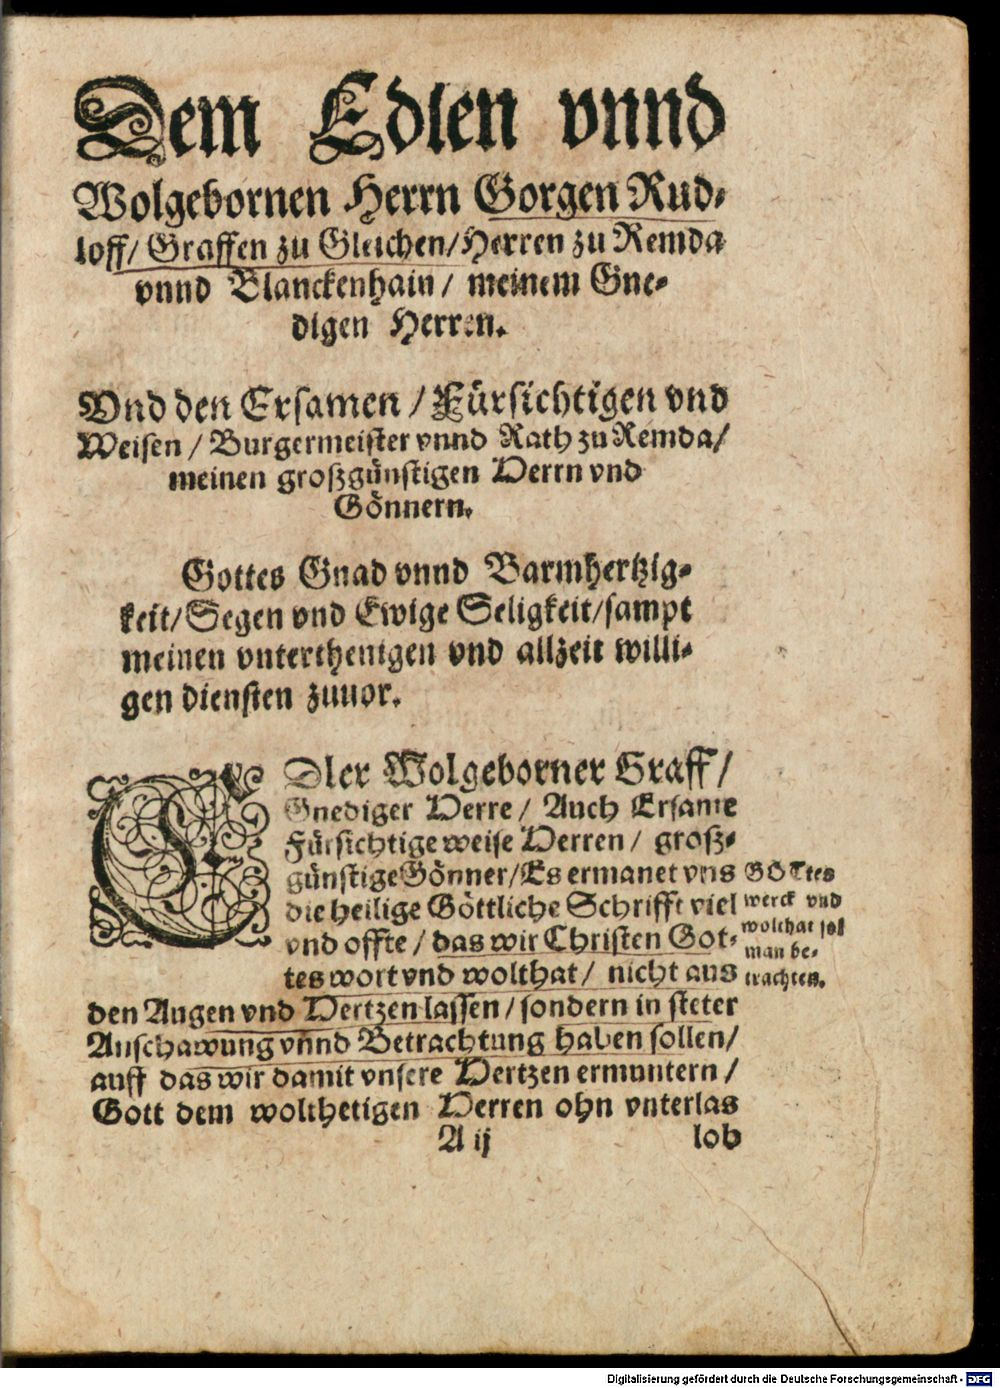 Dem Edlen vnnd
Wolgebornen Herrn Gorgen Rud-
loff/ Graffen zu Gleichen/Herren zu Remda
vnnd Blanckenhain/ meinem Gne-
digen Herren.
Vnd den Ersamen / Fürsichtigen vnd
Weisen / Burgermeister vnnd Rath zu Remda/
meinen großgünstigen Herrn vnd
Gönnern.
Gottes Gnad vnnd Barmhertzig-
keit/Segen vnd Ewige Seligkeit/sampt
meinen vnterthenigen vnd allzeit willi-
gen diensten zuuor.
EDler Wolgeborner Graff/
Gnediger Herre / Auch Ersame
Fürsichtige weise Herren / groß-
günstige Gönner/Es ermanet vns
die heilige Göttliche Schrifft viel
vnd offte / das wir Christen Got-
tes wort vnd wolthat/ nicht aus
den Augen vnd Hertzen lassen / sondern in steter
Anschawung vnnd Betrachtung haben sollen/
auff das wir damit vnsere Hertzen ermuntern /
Gott dem wolthetigen Herren ohn vnterlas
A ij lob
GOTtes
werck vnd
wolthat sol
man be-
trachten.
Digitalisierung gefördert durch die Deutsche Forschungsgemeinschaft - DFG